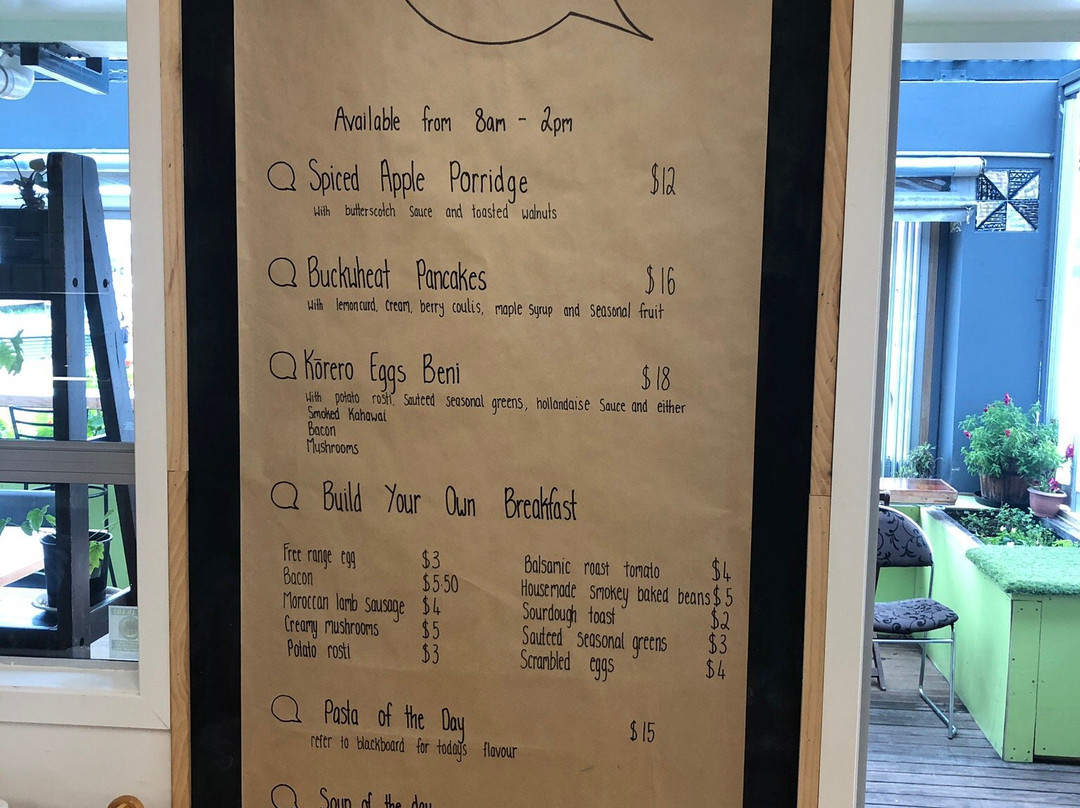 Available from 8am - 2pm
Spiced Apple Porridge $12
with butterscotch sauce and toasted walnuts
Buckwheat Pancakes $16
with lemoncurd, cream, berry coulis, maple syrup and seasonal fruit
Kōrero Eggs Beni $18
with potato rosti, sauteed seasonal greens, hollandaise sauce and either
Smoked Kahawai
Bacon
Mushrooms
Build Your Own Breakfast
Free range egg $3
Bacon $5.50
Moroccan lamb sausage $4
Creamy mushrooms $5
Potato rosti $3
Balsamic roast tomato $4
Housemade smokey baked beans $5
Sourdough toast $2
Sauteed seasonal greens $3
Scrambled eggs $4
Pasta of the Day $15
refer to blackboard for todays flavour
Soup of the day